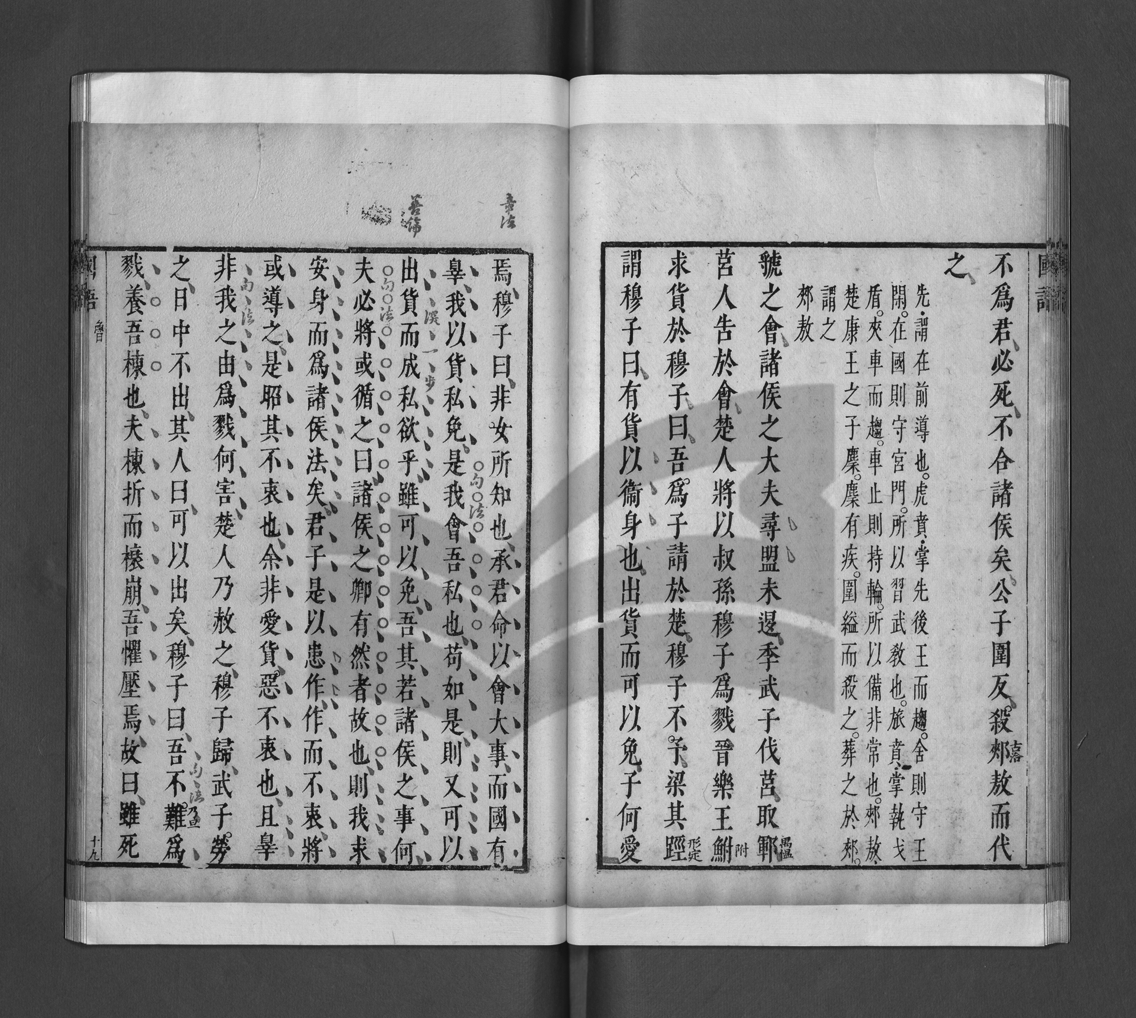 國語
不爲君必死不合諸侯矣公子圍反殺郟敖而代
嘉
之
先謂在前導也虎賁掌先後王而趨舍則守王
閑在國則守宮門所以習武教也旅賁掌執戈
盾夾車而趨車止則持輪所以備非常也郟敖
楚康王之子麇麇有疾圍縊而殺之葬之於郟
謂之
郟敖
虢之會諸侯之大夫尋盟未退季武子伐莒取鄆
莒人告於會楚人將以叔孫穆子爲戮晉樂王鮒
附
求貨於穆子曰吾爲子請於楚穆子不予梁其踁
形定
謂穆子曰有貨以衞身也出貨而可以免子何愛
章法
焉穆子曰非女所知也承君命以會大事而國有
句法
辠我以貨私免是我會吾私也苟如是則又可以
深一步
出貨而成私欲乎雖可以免吾其若諸侯之事何
句法
夫必將或循之曰諸侯之卿有然者故也則我求
安身而爲諸侯法矣君子是以患作作而不衷將
或導之是昭其不衷也余非愛貨惡不衷也且辠
句法
非我之由爲戮何害楚人乃赦之穆子歸武子勞
之日中不出其人曰可以出矣穆子曰吾不難爲
句法
戮養吾棟也夫棟折而榱崩吾懼壓焉故曰雖死
國語
魯
十九